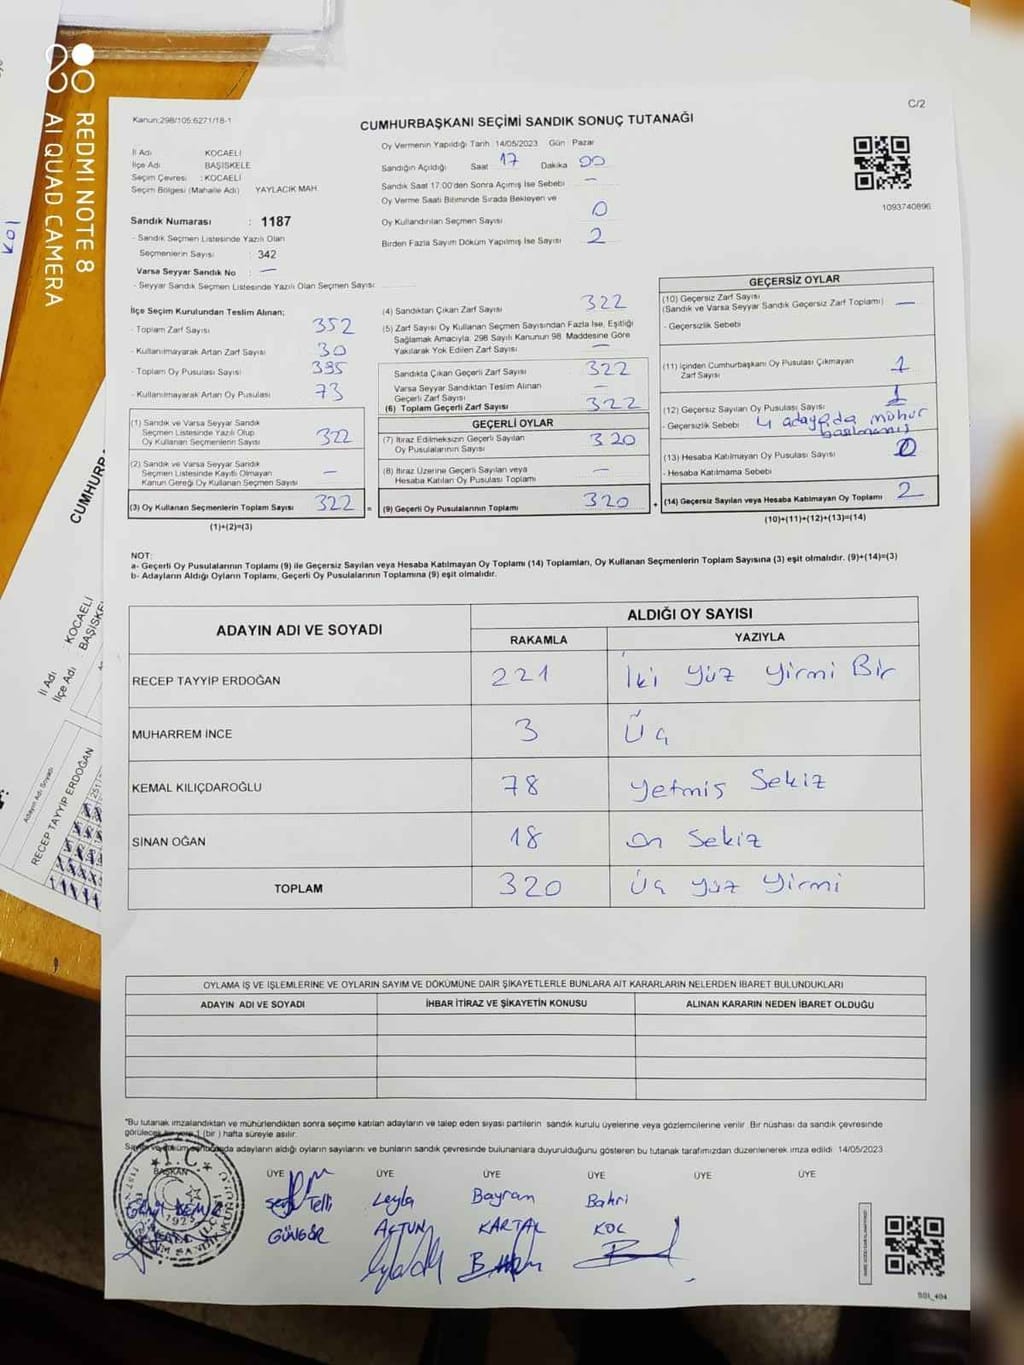 REDMI NOTE 8
AI QUAD CAMERA
C/2
Kanun:298/105:6271/18-1
CUMHURBAŞKANI SEÇİMİ SANDIK SONUÇ TUTANAĞI
İl Adı KOCAELİ
İlçe Adı BAŞİSKELE
Seçim Çevresi : KOCAELİ
Seçim Bölgesi (Mahalle Adı) YAYLACIK MAH.
Oy Vermenin Yapıldığı Tarih 14/05/2023 Gün Pazar
Sandığın Açıldığı Saat 17 Dakika 00
Sandık Saat 17:00'den Sonra Açımış İse Sebebi —
Oy Verme Saati Bitiminde Sırada Bekleyen ve
Oy Kullandırılan Seçmen Sayısı 0
Birden Fazla Sayım Döküm Yapılmış İse Sayısı 2
1093740896
Sandık Numarası : 1187
- Sandık Seçmen Listesinde Yazılı Olan
Seçmenlerin Sayısı : 342
Varsa Seyyar Sandık No : —
- Seyyar Sandık Seçmen Listesinde Yazılı Olan Seçmen Sayısı:
İlçe Seçim Kurulundan Teslim Alınan;
- Toplam Zarf Sayısı 352
- Kullanılmayarak Artan Zarf Sayısı 30
- Toplam Oy Pusulası Sayısı 395
- Kullanılmayarak Artan Oy Pusulası 73
(1) Sandık ve Varsa Seyyar Sandık
Seçmen Listesinde Yazılı Olup
Oy Kullanan Seçmenlerin Sayısı 322
(2) Sandık ve Varsa Seyyar Sandık
Seçmen Listesinde Kayıtlı Olmayan
Kanun Gereği Oy Kullanan Seçmen Sayısı —
(3) Oy Kullanan Seçmenlerin Toplam Sayısı 322 =
(1)+(2)=(3)
(4) Sandıktan Çıkan Zarf Sayısı 322
(5) Zarf Sayısı Oy Kullanan Seçmen Sayısından Fazla İse, Eşitliği
Sağlamak Amacıyla. 298 Sayılı Kanunun 98. Maddesine Göre
Yakılarak Yok Edilen Zarf Sayısı —
Sandıkta Çıkan Geçerli Zarf Sayısı 322
Varsa Seyyar Sandıktan Teslim Alınan
Geçerli Zarf Sayısı —
(6) Toplam Geçerli Zarf Sayısı 322
GEÇERLİ OYLAR
(7) İtiraz Edilmeksizin Geçerli Sayılan
Oy Pusulalarının Sayısı 320
(8) İtiraz Üzerine Geçerli Sayılan veya
Hesaba Katılan Oy Pusulası Toplamı —
(9) Geçerli Oy Pusulalarının Toplamı 320 +
GEÇERSİZ OYLAR
(10) Geçersiz Zarf Sayısı
(Sandık ve Varsa Seyyar Sandık Geçersiz Zarf Toplamı) —
- Geçersizlik Sebebi
(11) İçinden Cumhurbaşkanı Oy Pusulası Çıkmayan
Zarf Sayısı 1
(12) Geçersiz Sayılan Oy Pusulası Sayısı 1
- Geçersizlik Sebebi 4 adayğıda mühür
basılmamış
(13) Hesaba Katılmayan Oy Pusulası Sayısı 0
- Hesaba Katılmama Sebebi
(14) Geçersiz Sayılan veya Hesaba Katılmayan Oy Toplamı 2
(10)+(11)+(12)+(13)=(14)
NOT:
a- Geçerli Oy Pusulalarının Toplamı (9) ile Geçersiz Sayılan veya Hesaba Katılmayan Oy Toplamı (14) Toplamları, Oy Kullanan Seçmenlerin Toplam Sayısına (3) eşit olmalıdır. (9)+(14)=(3)
b- Adayların Aldığı Oyların Toplamı, Geçerli Oy Pusulalarının Toplamına (9) eşit olmalıdır.
ADAYIN ADI VE SOYADI
ALDIĞI OY SAYISI
RAKAMLA YAZIYLA
RECEP TAYYİP ERDOĞAN 221 İki yüz yirmi Bir
MUHARREM İNCE 3 Üç
KEMAL KILIÇDAROĞLU 78 yetmiş Sekiz
SİNAN OĞAN 18 on Sekiz
TOPLAM 320 Üç yüz yirmi
OYLAMA İŞ VE İŞLEMLERİNE VE OYLARIN SAYIM VE DÖKÜMÜNE DAİR ŞİKAYETLERLE BUNLARA AİT KARARLARIN NELERDEN İBARET BULUNDUKLARI
ADAYIN ADI VE SOYADI İHBAR İTİRAZ VE ŞİKAYETİN KONUSU ALINAN KARARIN NEDEN İBARET OLDUĞU
"Bu tutanak imzalandıktan ve mühürlendikten sonra seçime katılan adayların ve talep eden siyasi partilerin sandık kurulu üyelerine veya gözlemcilerine verilir. Bir nüshası da sandık çevresinde
görülecek bir yere 1 (bir) hafta süreyle asılır.
adayların aldığı oyların sayıları ve bunların sandık çevresinde bulunanlara duyurulduğunu gösteren bu tutanak tarafımızdan düzenlenerek imza edildi. 14/05/2023
BAŞKAN ÜYE ÜYE ÜYE ÜYE ÜYE ÜYE
Telli Leyla Bayram Bahri
GÜNGÖR ALTUN KARTAL KOÇ
T.C.
1923
KOCAELİ
BAŞİSKE
İl Adı
İlçe Adı
CUMHURB
Adayın Adı Soyadı
RECEP TAYYİP ERDOĞAN